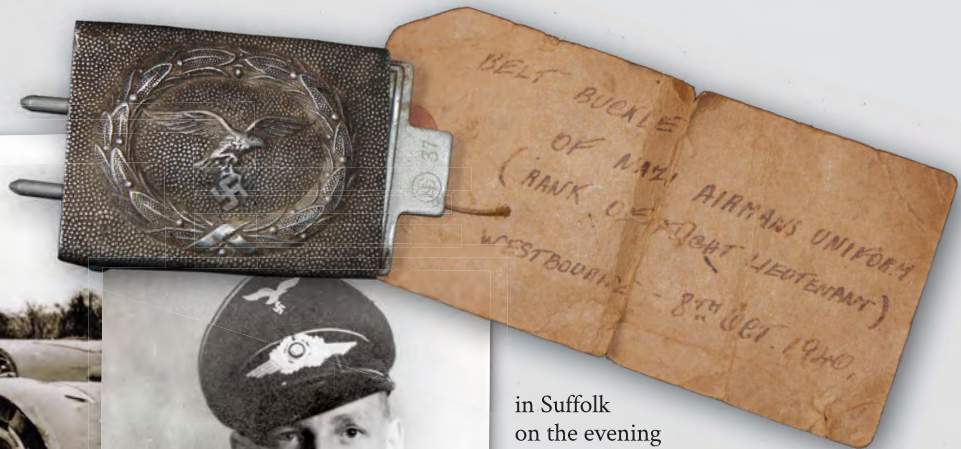 BELT
BUCKLE
OF NAZI AIRMANS UNIFORM
(RANK OF FLIGHT LIEUTENANT)
WESTBOURNE - 8TH OCT. 1940.
37
in Suffolk
on the evening